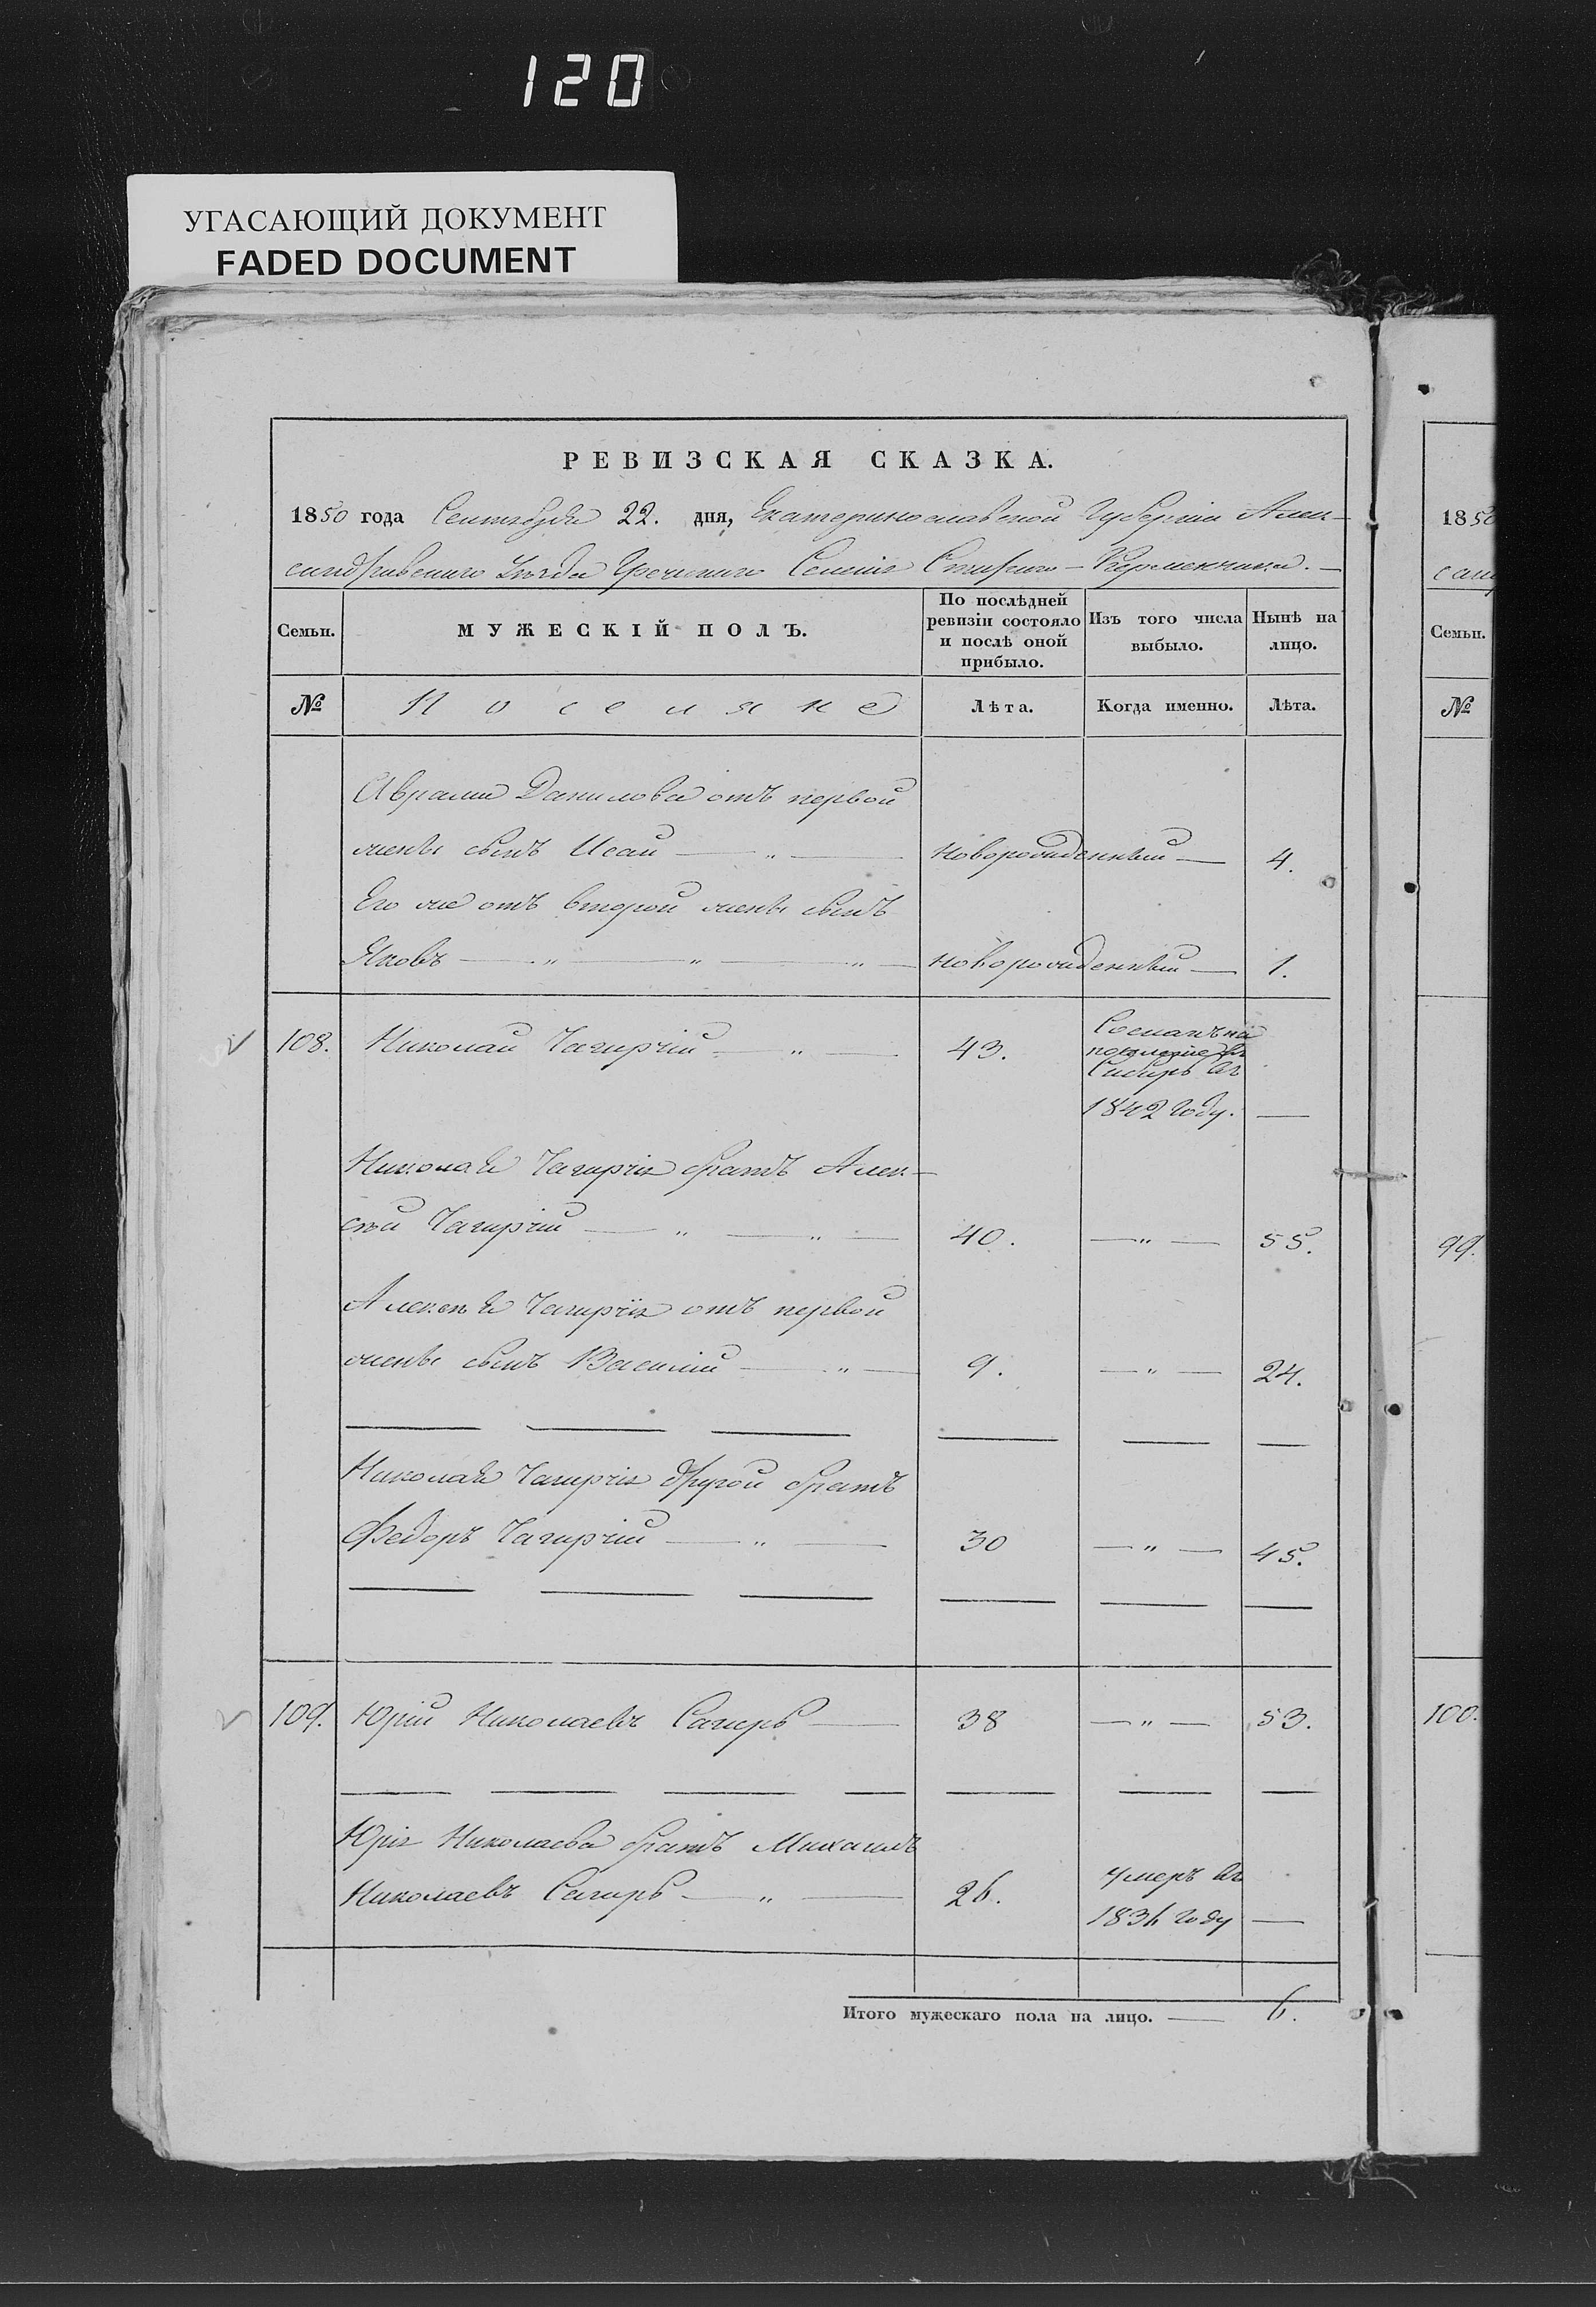 120
УГАСАЮЩИЙ ДОКУМЕНТ
FADED DOCUMENT
РЕВИЗСКАЯ СКАЗКА.
1850 года Сентября 22. дня, Екатеринославской Губерніи Алек-
сандровскаго Уѣзда Греческаго Селенія Стараго-Керменчика.
Семьи.
МУЖЕСКІЙ ПОЛЪ.
По послѣдней
ревизіи состояло
и послѣ оной
прибыло.
Изъ того числа
выбыло.
Нынѣ на
лицо.
№ Поселяне Лѣта. Когда именно. Лѣта.
Аврама Данилова отъ первой
жены сынъ Исай — „ — новорожденный — 4.
Его же отъ второй жены сынъ
Яковъ — „ — „ — „ — новорожденный — 1.
108. Николай Чагирчій — „ — 43.
Сосланъ на
поселеніе въ
Сибирь въ
1842 году. —
Николая Чагирчія братъ Алек-
сѣй Чагирчій — „ — „ — 40. — „ — 55.
Алексѣя Чагирчія отъ первой
жены сынъ Василій — „ — 9. — „ — 24.
Николая Чагирчія другой братъ
Федоръ Чагирчій — „ — 30 — „ — 45.
109. Юрій Николаевъ Сагиръ — 38 — „ — 53.
Юрія Николаева братъ Михаилъ
Николаевъ Сагиръ — „ — 26.
Умеръ въ
1836 году —
Итого мужескаго пола на лицо. — 6.
1850
сан
Семьи.
№
99.
100.